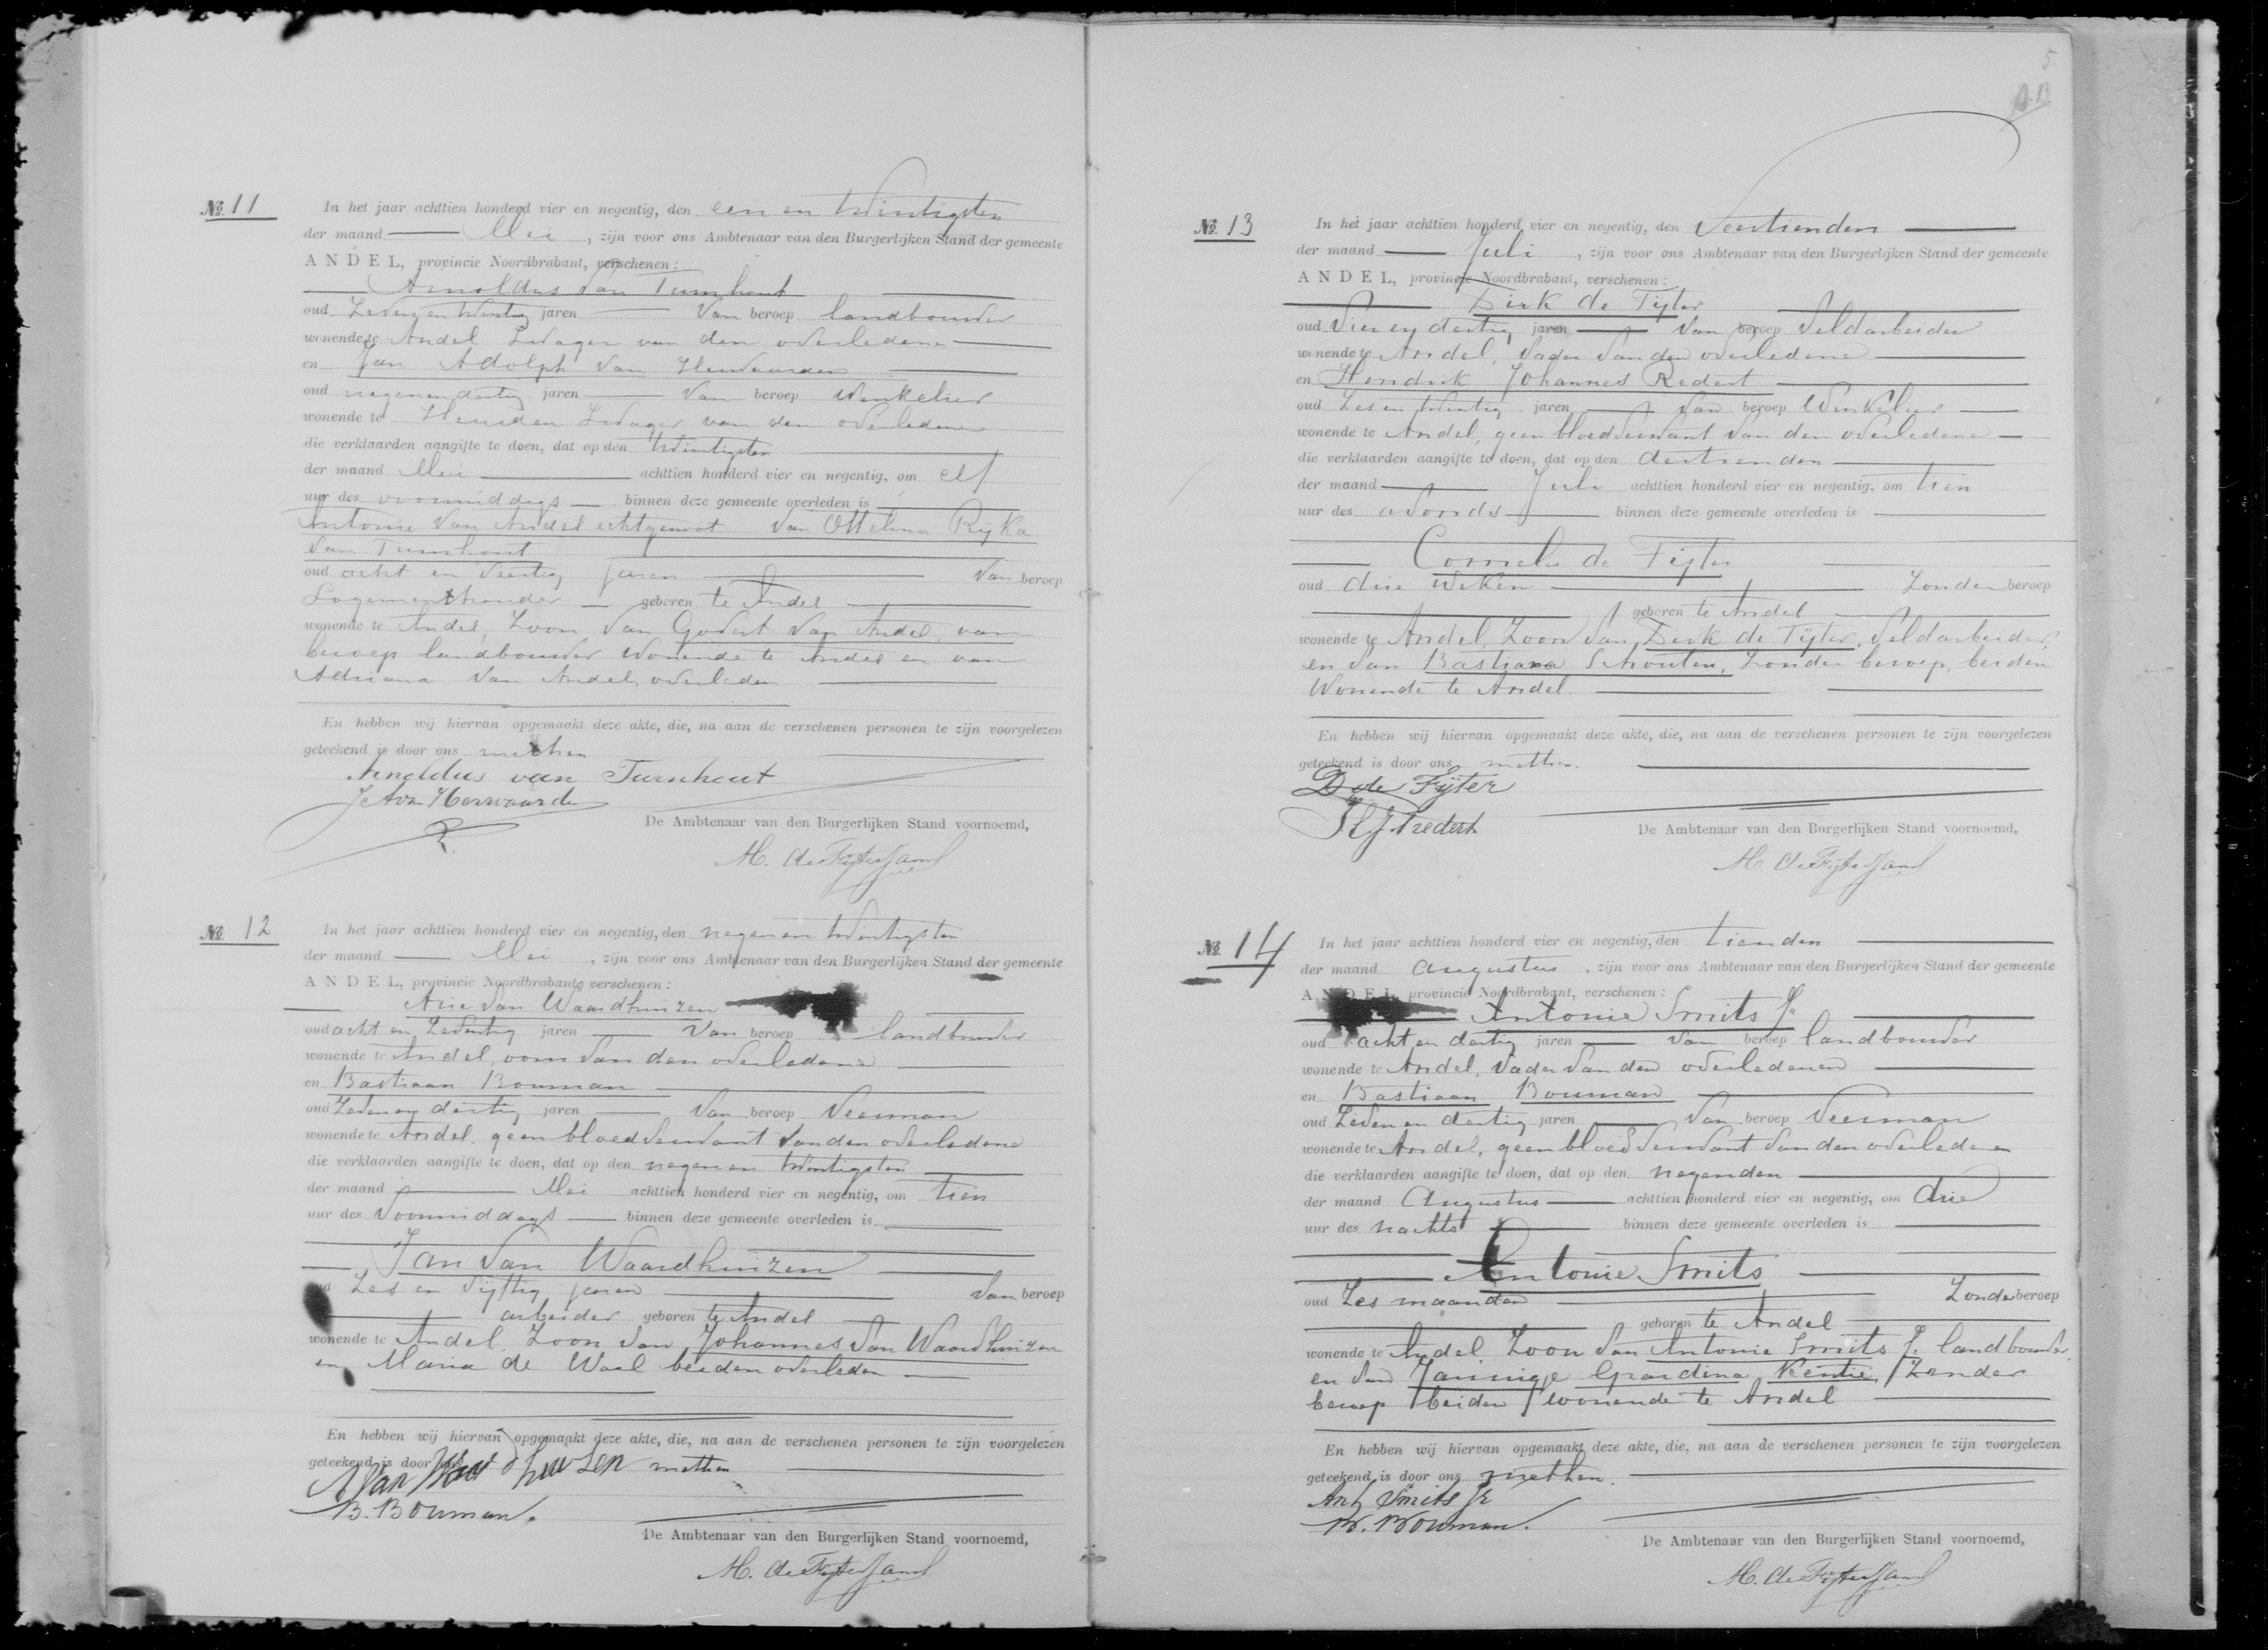 5
AB
No. 11
In het jaar achttien honderd vier en negentig, den een en twintigsten
der maand Mei, zijn voor ons Ambtenaar van den Burgerlijken Stand der gemeente
ANDEL, provincie Noordbrabant, verschenen:
Arnoldus van Turnhout
oud Zeven en twintig jaren van beroep landbouwer
wonende te Andel Zwager van den overledene
en Jan Adolph van Herwaarden
oud negen en dertig jaren van beroep winkelier
wonende te Heusden Zwager van den overledene
die verklaarden aangifte te doen, dat op den twintigsten
der maand Mei achttien honderd vier en negentig, om elf
uur des voormiddags binnen deze gemeente overleden is
Antonie van Andel echtgenoot van Ottelina Rijka
van Turnhout
oud acht en veertig jaren van beroep
Logementhouder geboren te Andel
wonende te Andel, Zoon van Godert van Andel, van
beroep landbouwer wonende te Andel en van
Adriana van Andel, overleden
En hebben wij hiervan opgemaakt deze akte, die, na aan de verschenen personen te zijn voorgelezen
geteekend is door ons met hen
Arnoldus van Turnhout
J A van Herwaarden
De Ambtenaar van den Burgerlijken Stand voornoemd,
M. de Fijter
No. 12
In het jaar achttien honderd vier en negentig, den negen en twintigsten
der maand Mei, zijn voor ons Ambtenaar van den Burgerlijken Stand der gemeente
ANDEL, provincie Noordbrabant, verschenen:
Arie van Waardhuizen
oud acht en Zeventig jaren van beroep landbouwer
wonende te Andel, oom van den overledene
en Bastiaan Bouman
oud Zeven en dertig jaren van beroep Veerman
wonende te Andel, geen bloedverwant van den overledene
die verklaarden aangifte te doen, dat op den negen en twintigsten
der maand Mei achttien honderd vier en negentig, om tien
uur des voormiddags binnen deze gemeente overleden is
Jan van Waardhuizen
oud Zes en vijftig jaren van beroep
arbeider geboren te Andel
wonende te Andel, Zoon van Johannes van Waardhuizen
en Maria de Waal beiden overleden
En hebben wij hiervan opgemaakt deze akte, die, na aan de verschenen personen te zijn voorgelezen
geteekend is door ons met hen
A van Waardhuizen
B. Bouman.
De Ambtenaar van den Burgerlijken Stand voornoemd,
M. de Fijter
No. 13
In het jaar achttien honderd vier en negentig, den veertienden
der maand Juli, zijn voor ons Ambtenaar van den Burgerlijken Stand der gemeente
ANDEL, provincie Noordbrabant, verschenen:
Dirk de Fijter
oud vier en dertig jaren van beroep Veldarbeider
wonende te Andel, vader van den overledene
en Hendrik Johannes Redert
oud Zes en twintig jaren van beroep Winkelier
wonende te Andel, geen bloedverwant van den overledene
die verklaarden aangifte te doen, dat op den dertienden
der maand Juli achttien honderd vier en negentig, om tien
uur des avonds binnen deze gemeente overleden is
Cornelis de Fijter
oud drie weken Zonder beroep
geboren te Andel
wonende te Andel, Zoon van Dirk de Fijter, Veldarbeider,
en van Bastiana Schouten, Zonder beroep, beiden
Wonende te Andel.
En hebben wij hiervan opgemaakt deze akte, die, na aan de verschenen personen te zijn voorgelezen
geteekend is door ons met hen.
D de Fijter
H J Redert
De Ambtenaar van den Burgerlijken Stand voornoemd,
M. de Fijter
No. 14
In het jaar achttien honderd vier en negentig, den tienden
der maand Augustus, zijn voor ons Ambtenaar van den Burgerlijken Stand der gemeente
ANDEL, provincie Noordbrabant, verschenen:
Antonie Smits Jr
oud acht en dertig jaren van beroep landbouwer
wonende te Andel, vader van den overledenen
en Bastiaan Bouman
oud Zeven en dertig jaren van beroep Veerman
wonende te Andel, geen bloedverwant van den overledenen
die verklaarden aangifte te doen, dat op den negenden
der maand Augustus achttien honderd vier en negentig, om drie
uur des nachts binnen deze gemeente overleden is
Antonie Smits
oud Zes maanden Zonder beroep
geboren te Andel
wonende te Andel Zoon van Antonie Smits Jr landbouwer,
en van Jannigje Gerardina Kentie, Zonder
beroep beiden wonende te Andel
En hebben wij hiervan opgemaakt deze akte, die, na aan de verschenen personen te zijn voorgelezen
geteekend is door ons met hen.
Ant Smits Jr
B. Bouman.
De Ambtenaar van den Burgerlijken Stand voornoemd,
M. de Fijter